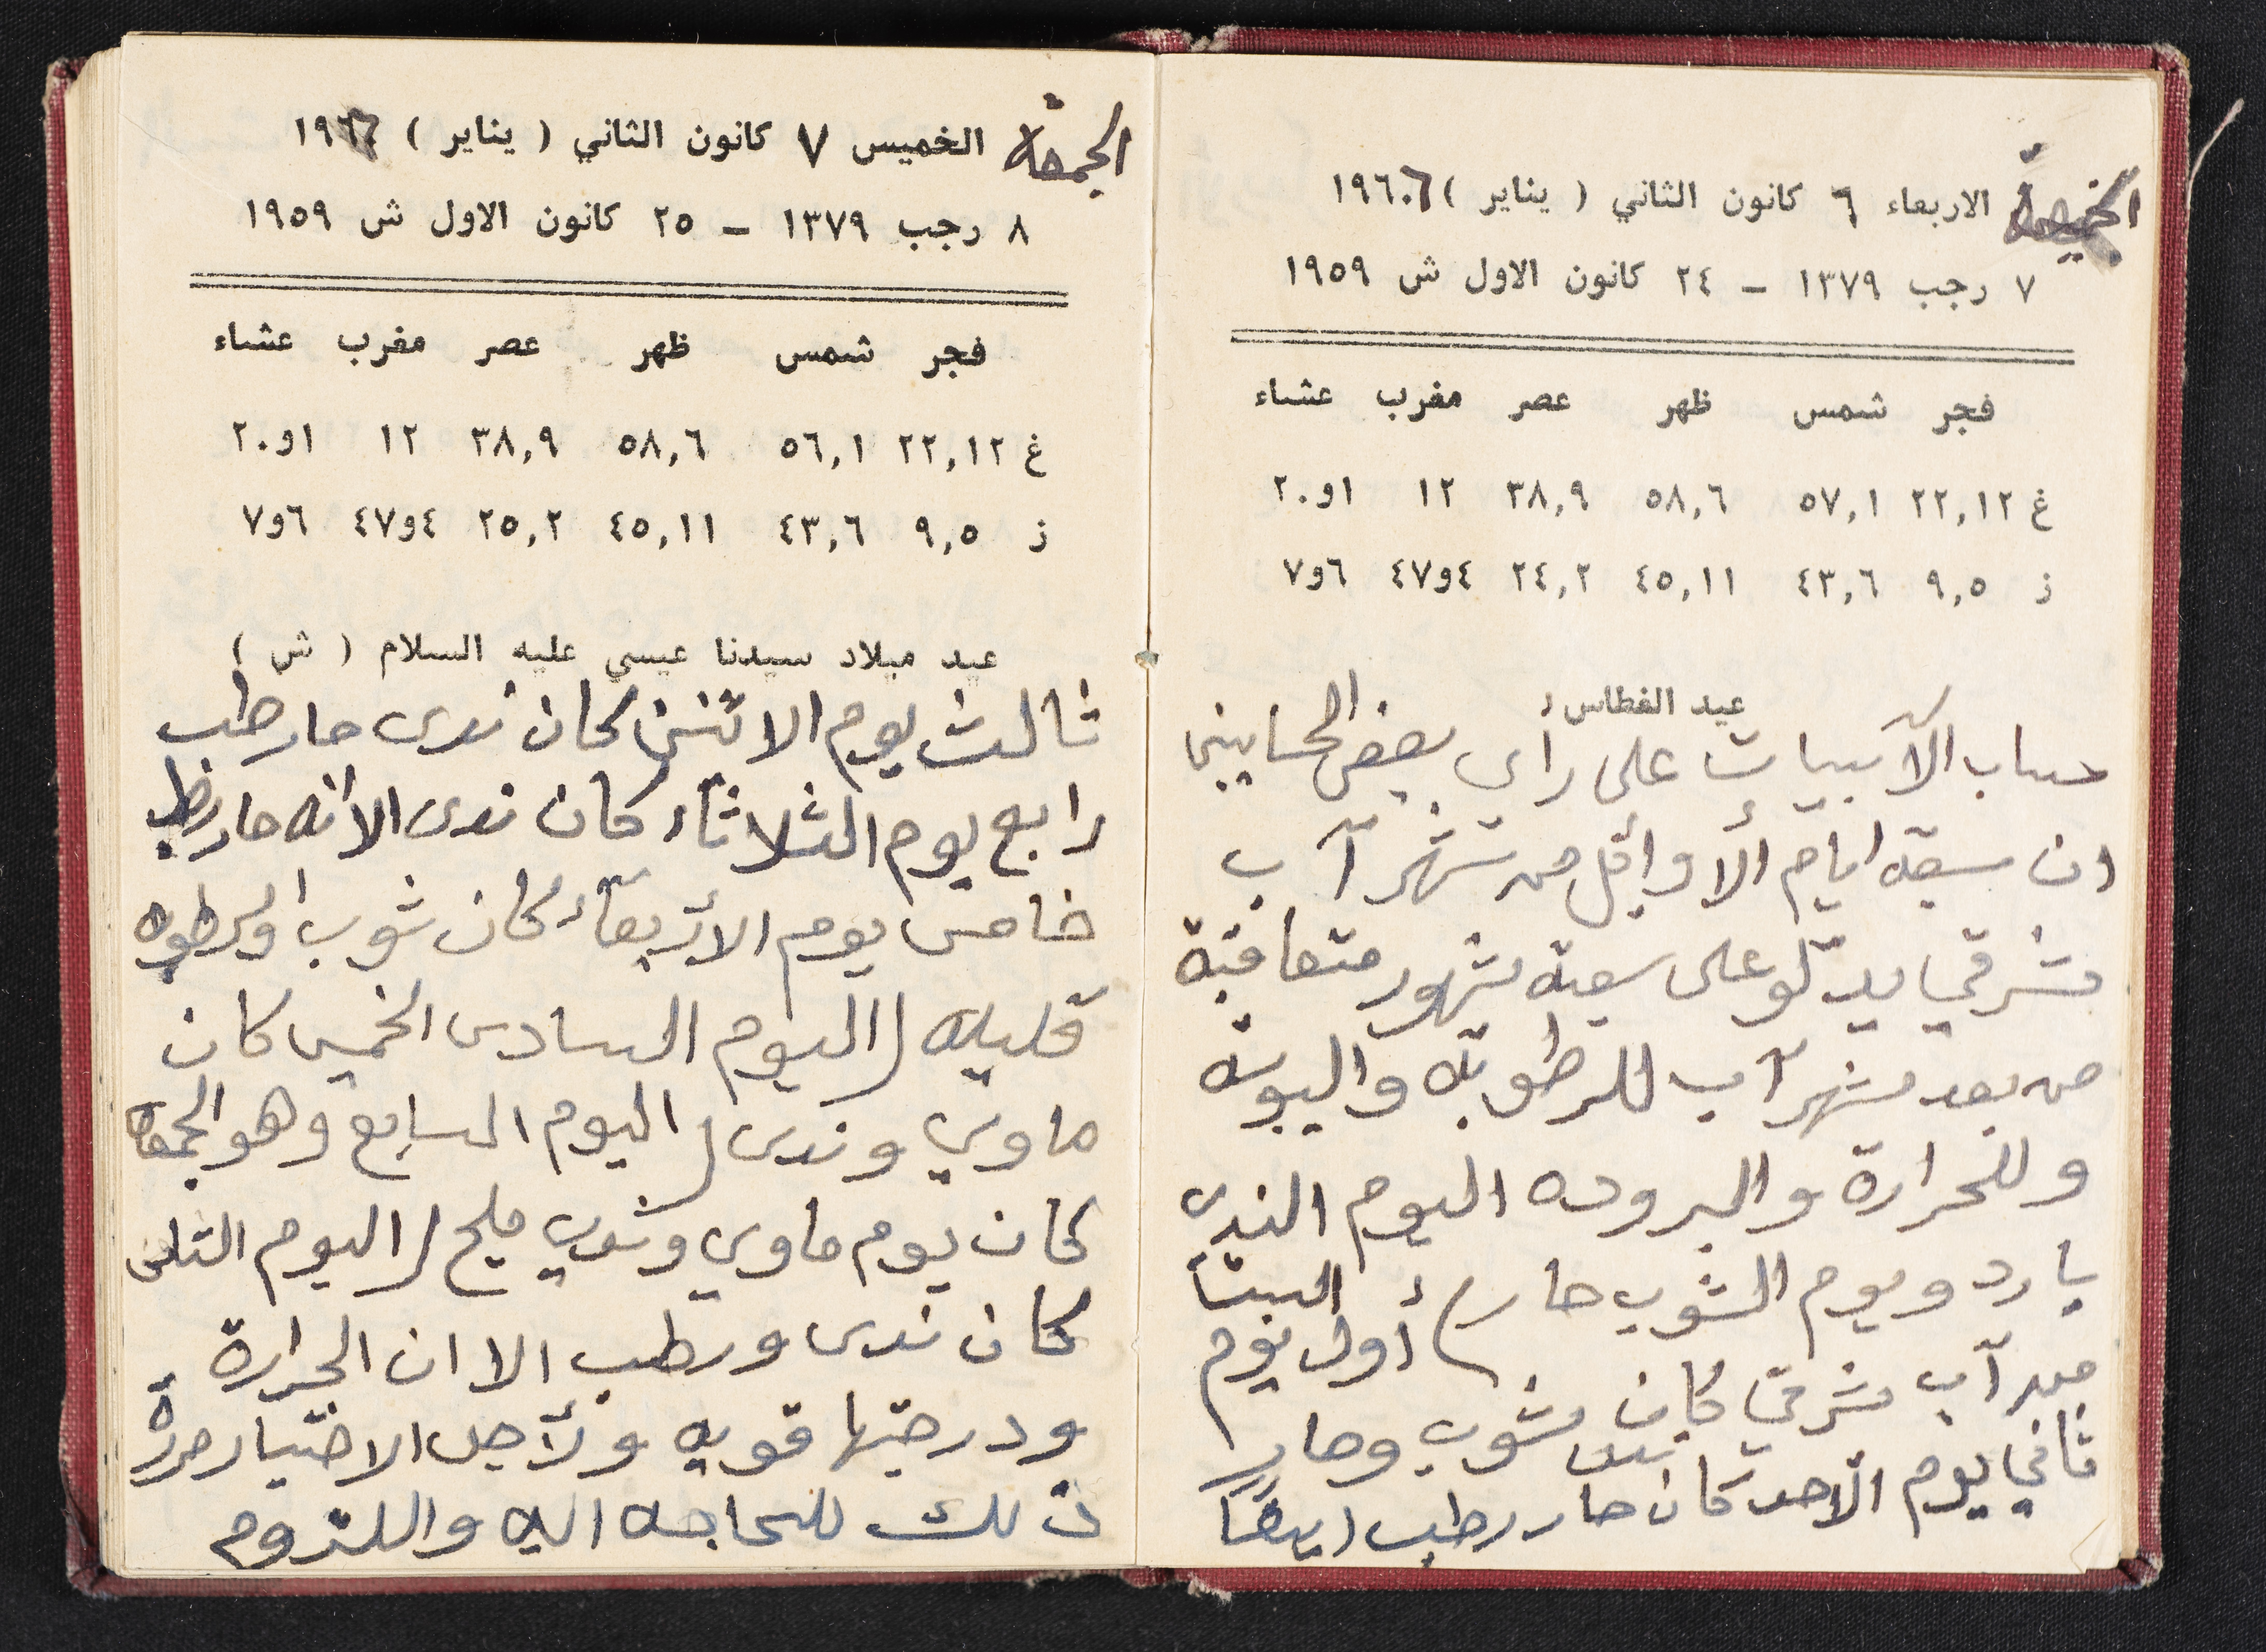 الخميس الاربعاء ٦ كانون الثاني ( يناير ) ١٩٦٠٦
٧ رجب ١٣٧٩ - ٢٤ كانون الاول ش ١٩٥٩
فجر شمس ظهر عصر مغرب عشاء
غ ٢٢,١٢ ٥٧,١ ٥٨,٦ ٣٨,٩ ١٢ ١و٢٠
ز ٩,٥ ٤٣,٦ ٤٥,١١ ٢٤,٢ ٤و٤٧ ٦و٧
عيد الغطاس
حساب الآبيات على رأي بعض الحسابين
ان سبعة ايام ألأوائل من شهر آب
شرقي يدلو على سبعة شهور متعاقبة
من بعد شهر آب للرطوبة واليبوسة
وللحرارة والبروده اليوم الندى
بارد ويوم الشوب حار أول يوم السبت
من آب شرقي كان شوب وحار
ثاني يوم الأحد كان حار رطب ايضا
الجمعة الخميس ٧ كانون الثاني ( يناير ) ١٩٦٦
٨ رجب ١٣٧٩ - ٢٥ كانون الاول ش ١٩٥٩
فجر شمس ظهر عصر مغرب عشاء
غ ٢٢,١٢ ٥٦,١ ٥٨,٦ ٣٨,٩ ١٢ ١و٢٠
ز ٩,٥ ٤٣,٦ ٤٥,١١ ٢٥,٢ ٤و٤٧ ٦و٧
عيد ميلاد سيدنا عيسي عليه السلام ( ش )
ثالث يوم الاثنين كان ندى حار رطب
رابع يوم الثلاثاء كان ندى الا انه حار رطب
خامس يوم الأربعاء كان شوب اولرطوبه
قليله اليوم السادس الخميس كان
ماوي وندى اليوم السابع وهو الجمعة
كان يوم ماوي وشوب مليح اليوم الثامن
كان ندى ورطب الا ان الحرارة
ودرجتها قويه ولأجل الاختيار حررة
ذلك للحاجه اليه واللزوم